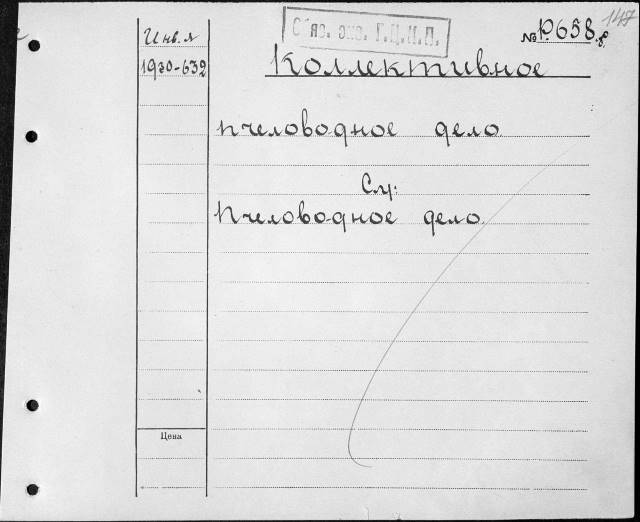 147
Обяз. экз. Г.Ц.К.П.
№ Р658.
Инв. №
1930-632
Коллективное
пчеловодное дело
См:
Пчеловодное дело.
Цена